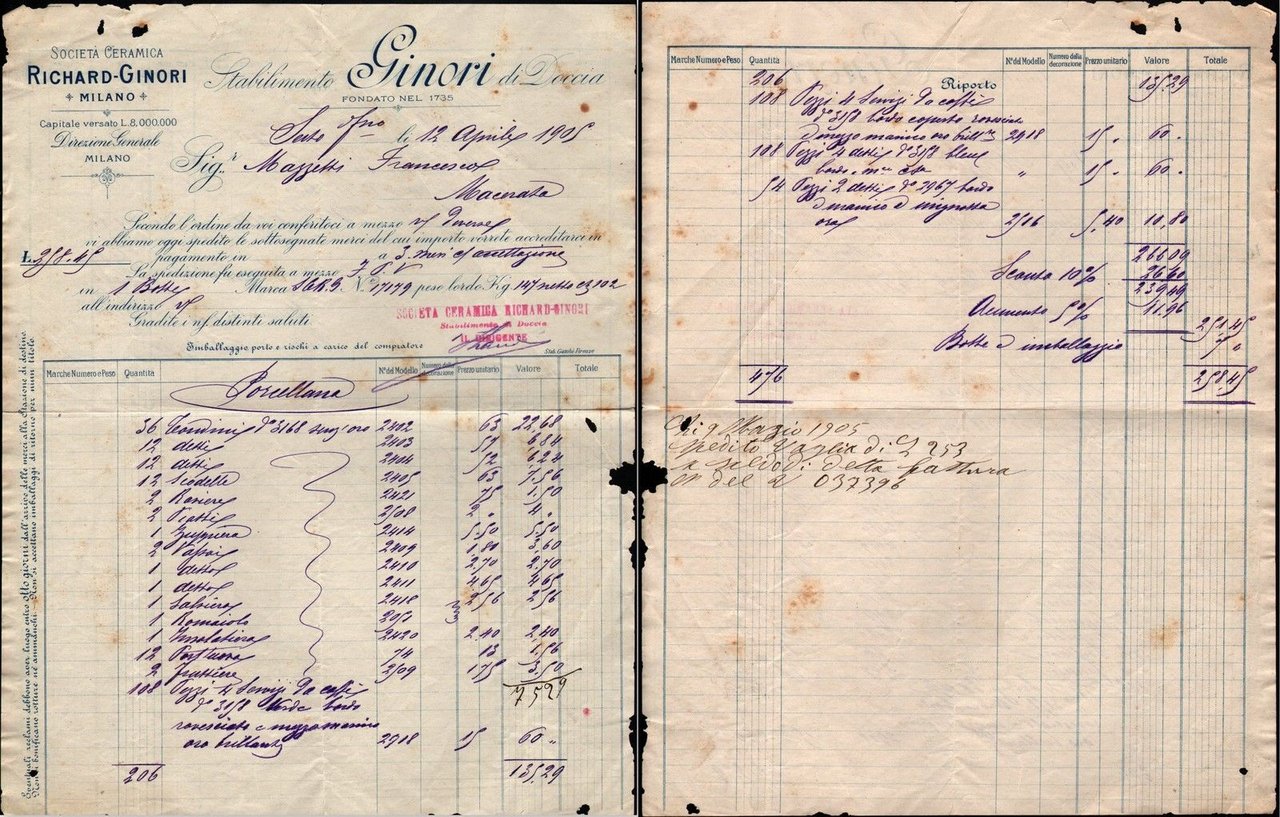 SOCIETÀ CERAMICA
RICHARD-GINORI
MILANO
Capitale versato L. 8.000.000
Direzione Generale
MILANO
Stabilimento Ginori di Doccia
FONDATO NEL 1735
Sesto Fno li 12 Aprile 1905
Sig.r Mazzetti Francesco
Macerata
Secondo l'ordine da voi conferitoci a mezzo
vi abbiamo oggi spedito le sottosegnate merci del cui importo vorrete accreditarci in
L. 258.45 pagamento in a 3 mesi c/ accettazione
La spedizione fu eseguita a mezzo
in 1 Botte Marca SCRG N.° 17179 peso lordo Kg. 147 netto Kg 102
all'indirizzo
Gradite i nf. distinti saluti
SOCIETÀ CERAMICA RICHARD-GINORI
Stabilimento di Doccia
IL DIRIGENTE
Imballaggio, porto e rischi a carico del compratore
Stab. Genchi Firenze
Eventuali reclami debbono aver luogo entro Otto giorni dall'arrivo delle merci alla stazione di destino.
Non si bonificano rotture nè ammanchi. Non si accettano imballaggi di ritorno per niun titolo.
Marche Numero e Peso Quantita N.° del Modello Numero della decorazione Prezzo unitario Valore Totale
Porcellana
36 Tondini d° 3168 senz'oro 2402 63 22,68
12 detti 2403 57 6,84
12 detti 2404 52 6,24
12 Scodelle 2405 63 7,56
2 Raviere 2421 75 1,50
2 Piatti 2408 2 „ 4 „
1 Zuppiera 2414 5.50 5,50
2 Vassoi 2409 1,80 3,60
1 detto 2410 2,70 2,70
1 detto 2411 4,65 4,65
1 Salsiera 2418 2,56 2,56
1 Romaiolo
1 Insalatiera 2420 2,40 2,40
12 74 13 1,56
2 fruttiere 2409 175 3,50
75,29
108 Pezzi 4 Servizi da caffè
d° 3158 verde bordo
rovesciato e mezzo manico
oro brillante 2918 15 60 „
206 135,29
Marche Numero e Peso Quantita N° del Modello Numero della decorazione Prezzo unitario Valore Totale
206 Riporto 135,29
108 Pezzi 4 Servizi da caffè
d° 3158 bordo rovesciato
e mezzo manico oro brill.te 2918 15 „ 60 „
108 Pezzi 4 detti d° 3158 bleu
bordo „ 15 „ 60 „
54 Pezzi 2 detti d° 3967 bordo
e manico
oro 2916 5,40 10,80
266.09
Sconto 10% 26.60
239.49
Aumento 5% 11.96
251.45
Botte e imballaggio 7 „
476 258.45
Li 9 Maggio 1905
Spedito Vaglia di £ 253
a saldo di detta fattura
N° del V 037393